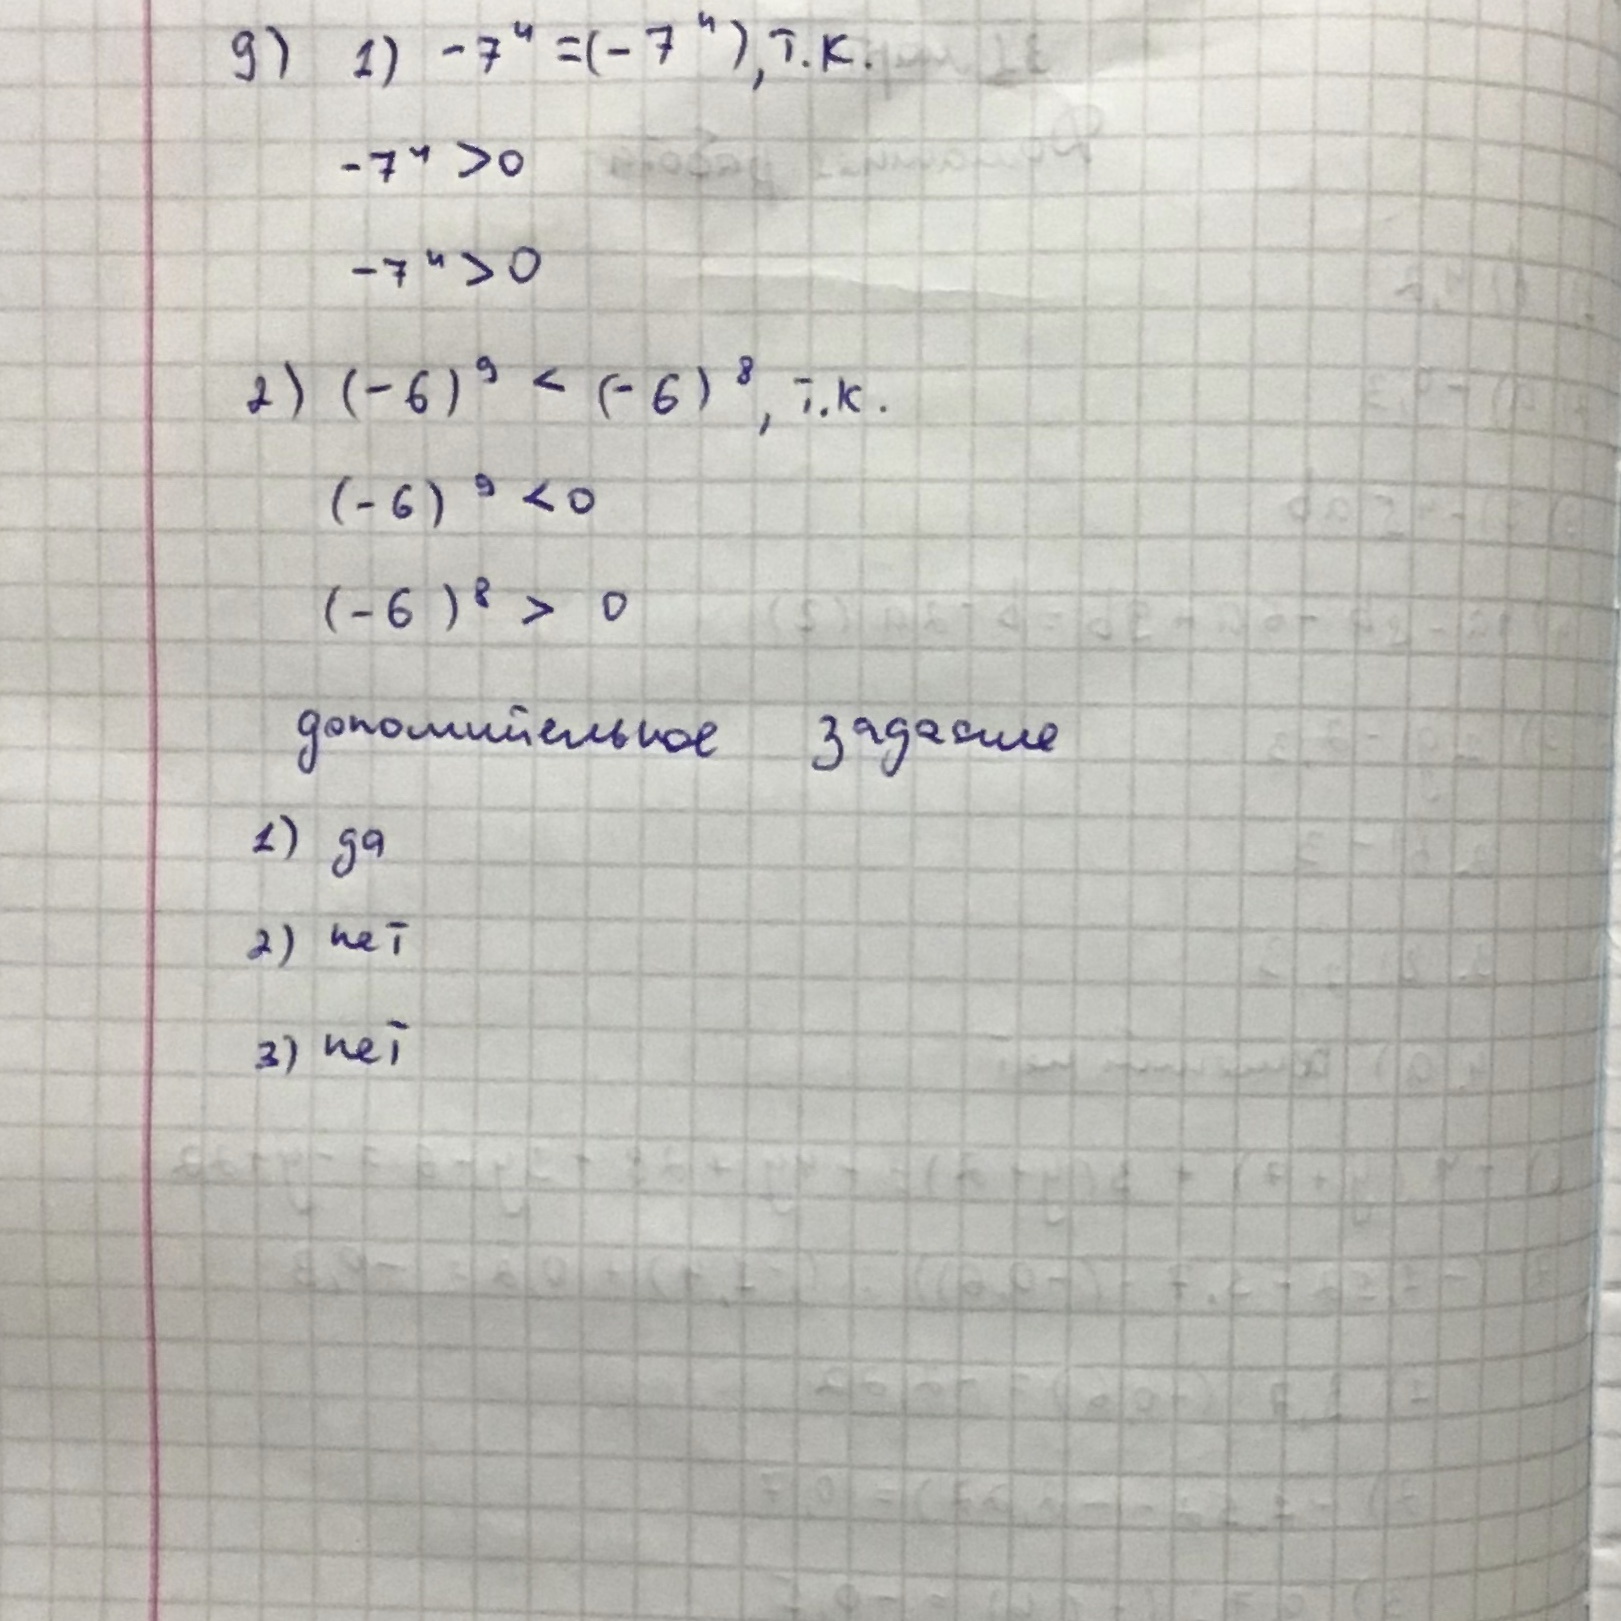 9) 1) -7⁴ =(-7⁴), т.к.
-7⁴ >0
-7⁴ >0
2) (-6)⁹ < (-6)⁸, т.к.
(-6)⁹ <0
(-6)⁸ > 0
дополнительное задание
1) да
2) нет
3) нет